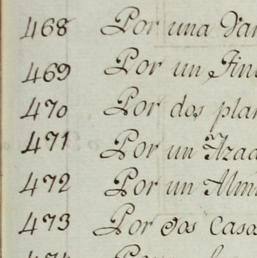 468 Por una Var
469 Por un
470 Por dos plan
471 Por un Azad
472 Por un Almi
473 Por dos Casa